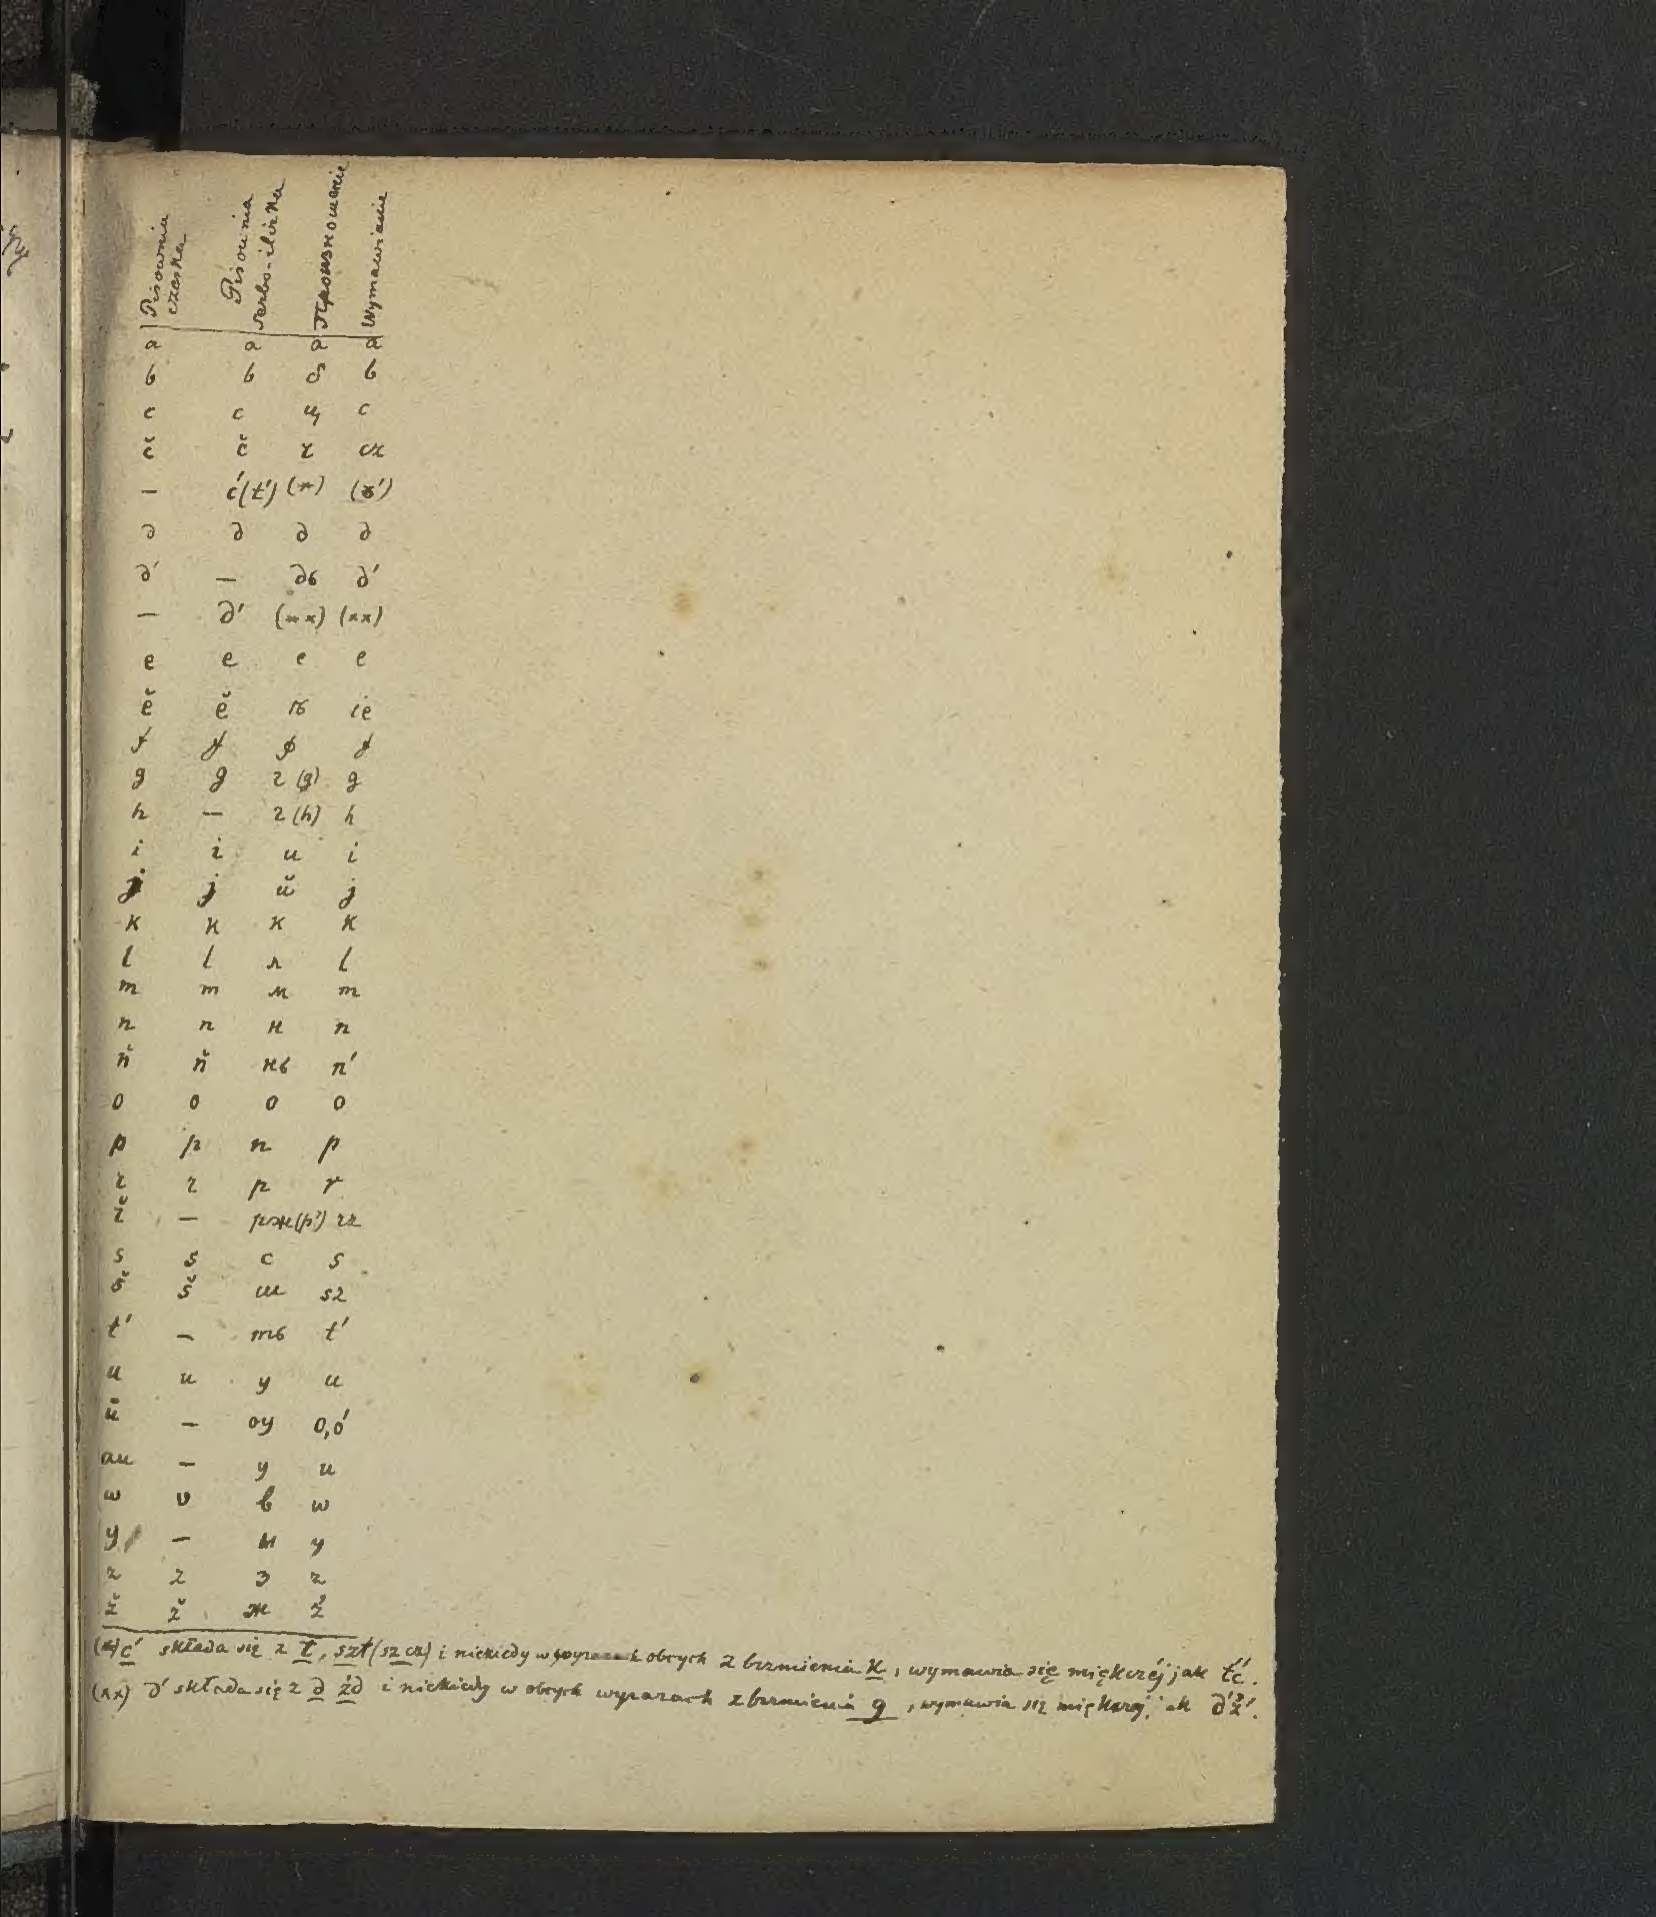 Pisownia czeska
Pisownia serbo-ilirska
Произношение
Wymawianie
a a a a
b b б b
c c ц c
č č ч cz
— ć(t') (*)
д д д д
д' — дь д'
— д' (**) (xx)
e e e e
ě ě ѣ ie
f f ф f
g g г (g) g
h — г (h) h
i i и i
j j й j
k k к k
l l л l
m m м m
n n н n
ň ň нь n'
o o o o
p p п p
r r р r
ř — рж(р') rz
s s с s
š š ш sz
t' — ть t'
u u у u
ů — оу o,ó
au — у u
w v в w
y — ы y
z z з z
ž ž ж ż
(*) ć składa się z t, szt (szcz) i niekiedy w obcych z brzmienia k, wymawia się miękczéj jak t'ć.
(xx) д' składa się z д żд i niekiedy w obcych wyrazach z brzmienia g, wymawia się miękczej jak д'ź'.